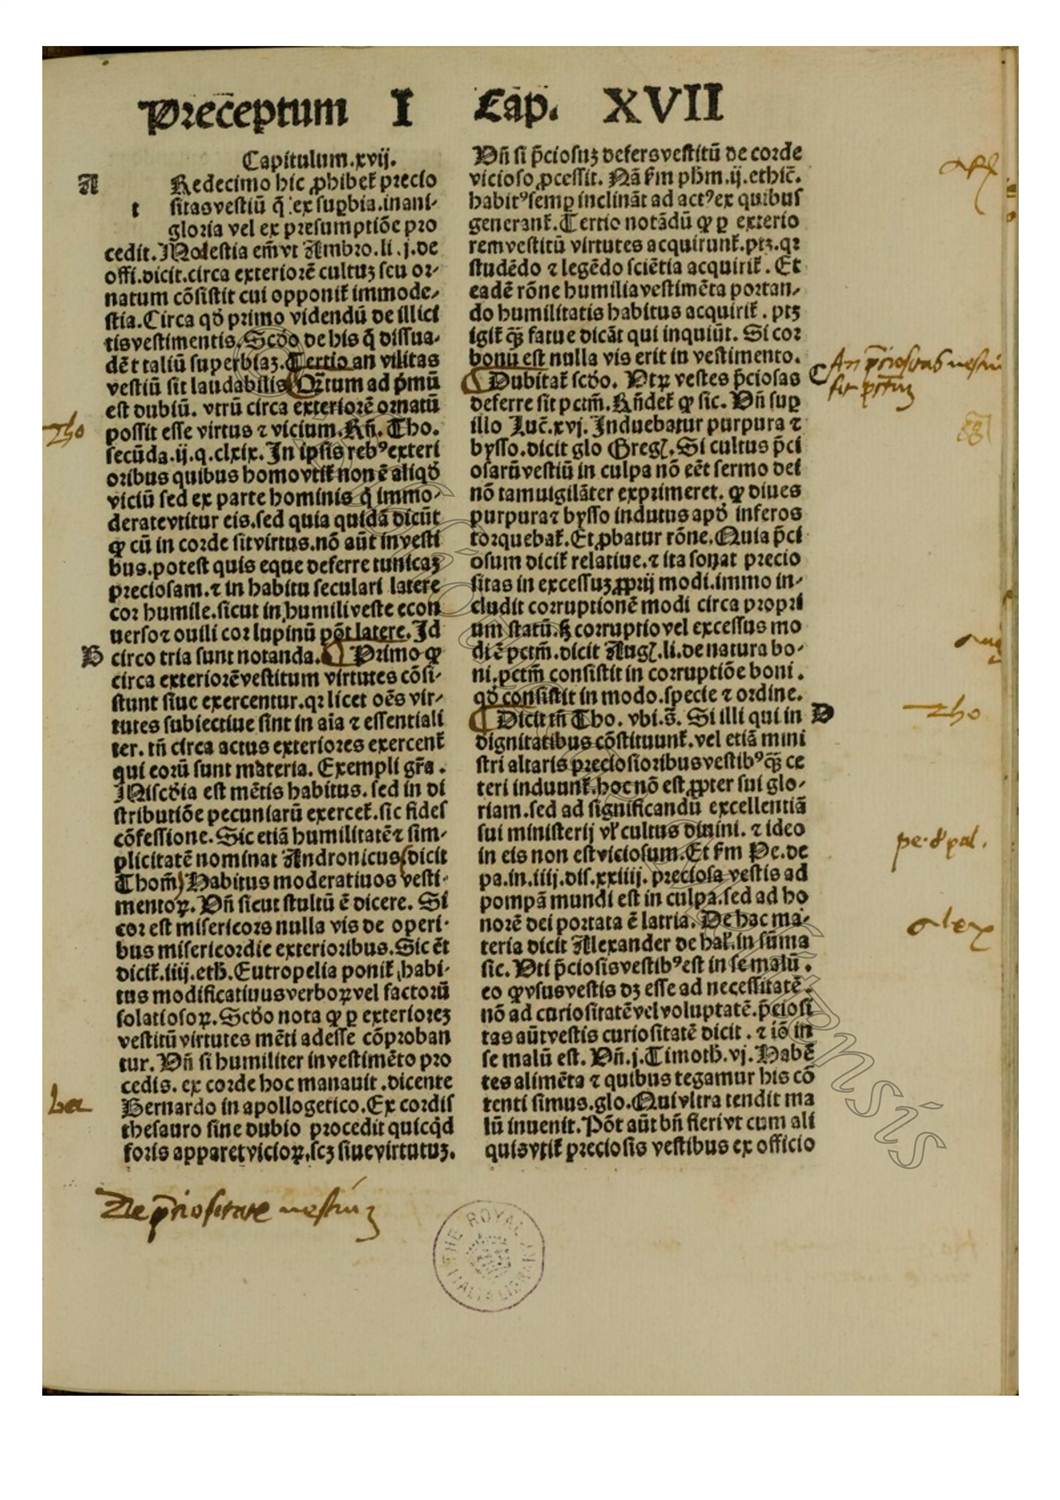 Preceptum I Cap. XVII
Capitulum.xvij.
A
t Redecimo hic ꝓhibet᷑ precio
sitas vestiū q̄ ex suꝑbia.inani-
gloria vel ex presumptiōe pro
cedit.Molestia em̄ vt Ambro.li.j.de
offi.dicit.circa exteriorē cultuȝ seu or-
natum cōsistit cui opponit᷑ immode-
stia.Circa qd̄ primo videndū de illici
tis vestimentis.Scdo de his q̄ dissua-
dēt taliū superbiaȝ.Tertio an vilitas
vestiū sit laudabilis ¶ Q̄tum ad pͥmū
est dubiū. vtrū circa exteriorē ornatū
possit esse virtus ⁊ vicium.Rñ. Tho.
secūda.ij.q.clxix.In ipsis rebꝰ exteri
oribus quibus homo vtit᷑ non ē aliqd̄
viciū sed ex parte hominis q̄ immo-
derate vtitur eis.sed quia quidā dicūt
ꝙ cū in corde sit virtus.nō aūt in vesti
bus.potest quis eque deferre tunicaȝ
preciosam.⁊ in habitu seculari latere
cor humile.sicut in humili veste econ
uerso ⁊ ouili cor lupinū pōt latere.Id
B circo tria sunt notanda. ¶ Primo ꝙ
circa exteriorē vestitum virtutes cōsi-
stunt siue exercentur.qꝛ licet oēs vir-
tutes subiectiue sint in aīa ⁊ essentiali
ter. tñ circa actus exteriores exercent᷑
qui eorū sunt materia. Exempli gr̄a.
Miscdia est mētis habitus. sed in di
stributiōe pecuniarū exercet᷑.sic fides
cōfessione. Sic etiā humilitatē ⁊ sim-
plicitatē nominat Andronicus(dicit
Thom)Habitus moderatiuos vesti-
mentoꝝ. Vñ sicut stultū ē dicere. Si
cor est misericors nulla vis de operi-
bus misericordie exterioribus.Sic ēt
dicit᷑.iiij.eth.Eutropelia ponit᷑ habi-
tus modificatiuus verboꝝ vel factorū
solatiosoꝝ.Scdo nota ꝙ ꝑ exteriorez
vestitū virtutes mēti adesse cōproban
tur. Vñ si humiliter in vestimēto pro
cedis. ex corde hoc manauit.dicente
Bernardo in apollogetico.Ex cordis
thesauro sine dubio procedit quicq̄d
foris apparet vicioꝝ.scȝ siue virtutuȝ.
Vñ si p̄ciosuȝ defers vestitū de corde
vicioso ꝓcessit. Nā sm̄ phm̄.ij.ethic̄.
habitꝰ semꝑ inclināt ad actꝰ ex quibus
generant᷑.Tertio notādū ꝙ ꝑ exterio
rem vestitū virtutes acquirunt᷑.ptȝ.qꝛ
studēdo ⁊ legēdo sciētia acquirit᷑. Et
eadē rōne humilia vestimēta portan-
do humilitatis habitus acquirit᷑. ptȝ
igit᷑ q̄ȝ fatue dicāt qui inquiūt. Si cor
bonū est nulla vis erit in vestimento.
¶ Dubitat᷑ scdo. Vtꝝ vestes p̄ciosas C
deferre sit pctm̄. Rñdet᷑ ꝙ sic. Vñ suꝑ
illo Luc̄.xvj. Induebatur purpura ⁊
bysso.dicit glo Greg. Si cultus p̄ci
osarū vestiū in culpa nō eēt sermo dei
nō tam uigilāter exprimeret. ꝙ diues
purpura ⁊ bysso indutus apd̄ inferos
torquebat᷑.Et ꝓbatur rōne.Quia p̄ci
osum dicit᷑ relatiue.⁊ ita sonat precio
sitas in excessuȝ ꝓprij modi.immo in-
cludit corruptionē modi circa propri
um statū.sȝ corruptio vel excessus mo
di ē pctm̄.dicit Aug.li.de natura bo-
ni.pctm̄ consistit in corruptiōe boni.
qd̄ consistit in modo.specie ⁊ ordine.
¶ Dicit tñ Tho. vbi.s̄. Si illi qui in D
dignitatibus cōstituunt᷑.vel etiā mini
stri altaris preciosioribus vestibꝰ q̄ȝ ce
teri induunt᷑.hoc nō est ꝓpter sui glo-
riam.sed ad significandū excellentiā
sui ministerij vl᷑ cultus diuini. ⁊ ideo
in eis non est viciosum.Et sm̄ Pe.de
pa.in.iiij.dis.xxiiij. preciosa vestis ad
pompā mundi est in culpa.sed ad ho
norē dei portata ē latria. De hac ma-
teria dicit Alexander de hal᷑.in sūma
sic. Vti p̄ciosis vestibꝰ est in se malū.
eo ꝙ vsus vestis dȝ esse ad necessitatē.
nō ad curiositatē vel voluptatē.p̄ciosi
tas aūt vestis curiositatē dicit. ⁊ iō in
se malū est. Vñ.j.Timoth.vj.Habē
tes alimēta ⁊ quibus tegamur his cō
tenti simus.glo.Qui vltra tendit ma
lū inuenit.Pōt aūt bñ fieri vt cum ali
quis vtit᷑ preciosis vestibus ex officio
Tho
be
An p̄ciositas vestiū
sit pctm̄
Aug
Tho
pe. d pal.
alex
De p̄ciositate vestiuȝ
THE ROYAL MALTA LIBRARY